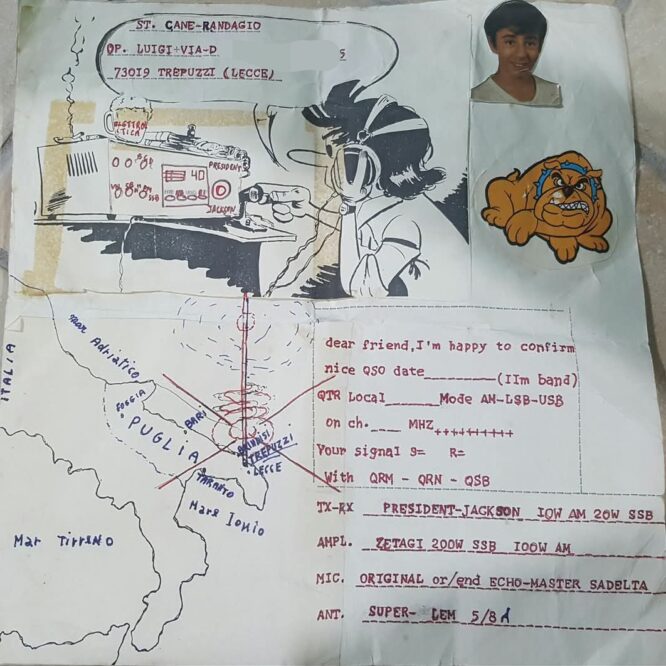 ST. CANE-RANDAGIO
OP. LUIGI÷VIA-D
73019 TREPUZZI (LECCE)
ELETTRO
ITICA
PRESIDENT
40
SSB
JACKSON
ITALIA
mar Adriatico
FOGGIA
BARI
PUGLIA
BRINDISI
TREPUZZI
LECCE
TARANTO
Mare Ionio
Mar Tirreno
dear friend,I'm happy to confirm
nice QSO date________(IIm band)
QTR Local______Mode AM-LSB-USB
on ch.___ MHZ++++++++
Your signal S= R=
With QRM - QRN - QSB
TX-RX PRESIDENT-JACKSON IOW AM 20W SSB
AMPL. ZETAGI 200W SSB IOOW AM
MIC. ORIGINAL or/end ECHO-MASTER SADELTA
ANT. SUPER- LEM 5/8λ